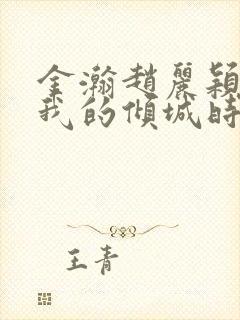 金瀚趙麗穎
我的傾城時
王青